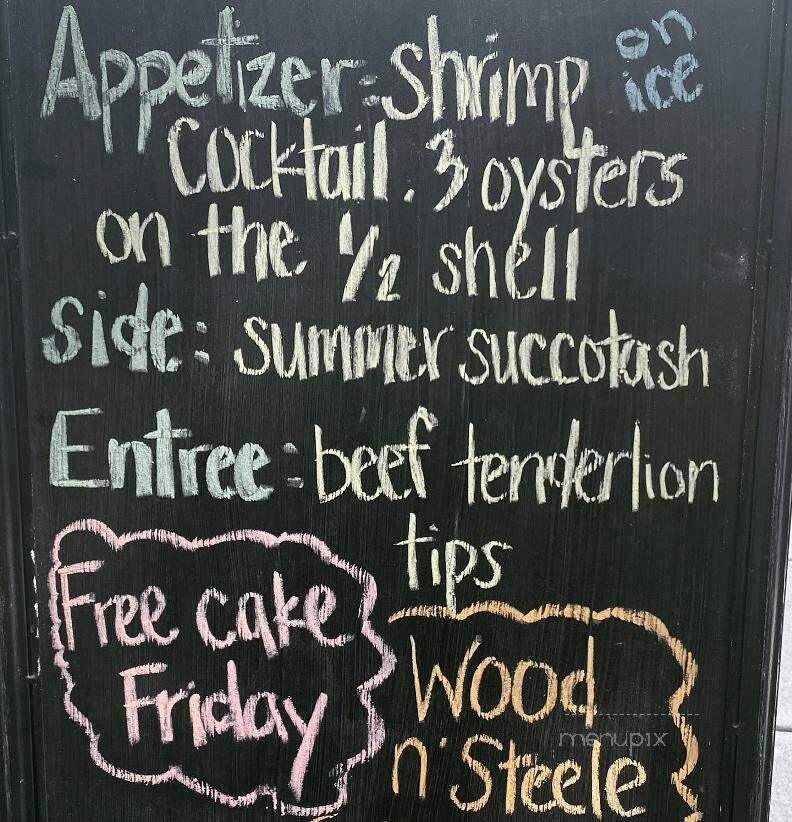 Appetizer: Shrimp
on
ice
Cocktail. 3 oysters
on the 1/2 shell
side: summer succotash
Entree: beef tenderlion
tips
Free cake
Friday
Wood
n' Steele
menupix